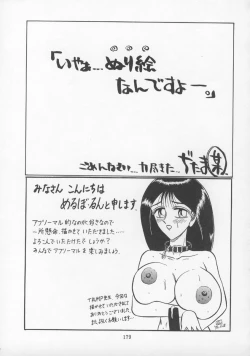 「いやぁ…ぬり絵
なんですよー。」
ごめんなさい…力尽きた…
みなさん こんにちは
めるぼ・るんと申します。
アブノーマル的なのが好きなので
一所懸命、描かせていただきました……
よろこんでいただけたでしょうか?
みんなでアブノーマルを楽しみましょう。
今回は
描かせていただき
ありがとうございました
175